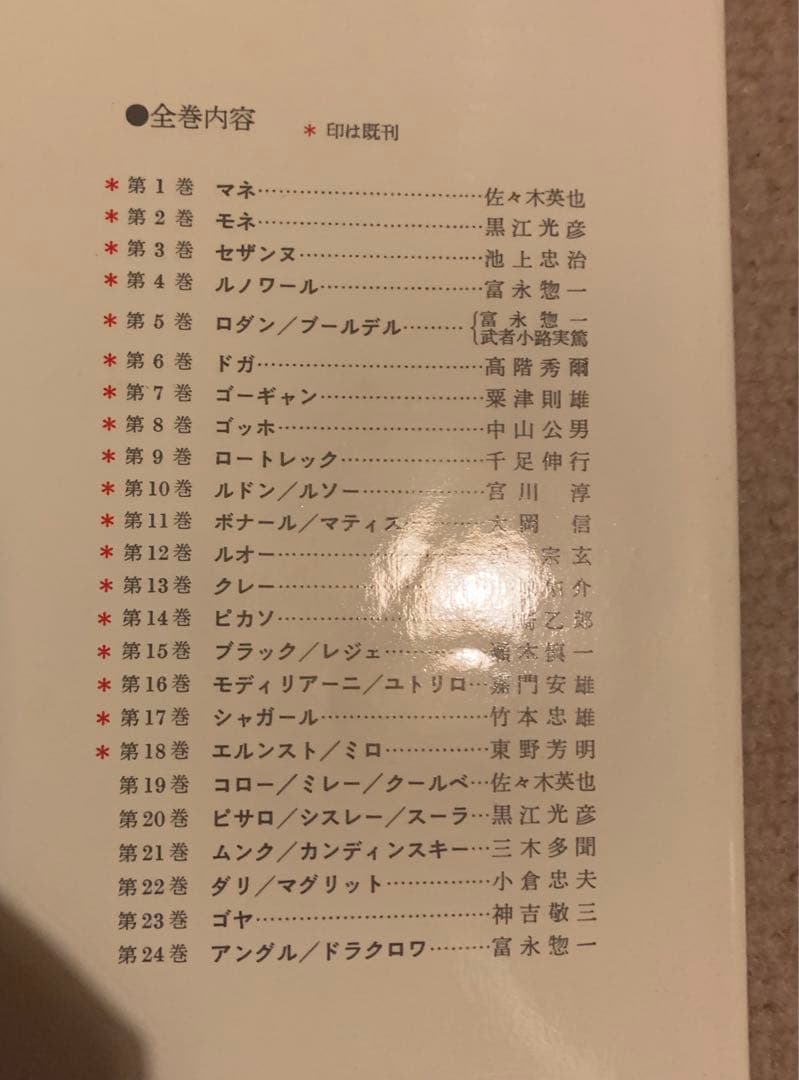 ●全巻内容 * 印は既刊
* 第1巻 マネ……佐々木英也
* 第2巻 モネ……黒江光彦
* 第3巻 セザンヌ……池上忠治
* 第4巻 ルノワール……富永惣一
* 第5巻 ロダン／ブールデル……{富永惣一
武者小路実篤
* 第6巻 ドガ……高階秀爾
* 第7巻 ゴーギャン……粟津則雄
* 第8巻 ゴッホ……中山公男
* 第9巻 ロートレック……千足伸行
* 第10巻 ルドン／ルソー……宮川 淳
* 第11巻 ボナール／マティス……大岡 信
* 第12巻 ルオー……宗玄
* 第13巻 クレー……介
* 第14巻 ピカソ……乙郎
* 第15巻 ブラック／レジェ……瀬木慎一
* 第16巻 モディリアーニ／ユトリロ…嘉門安雄
* 第17巻 シャガール……竹本忠雄
* 第18巻 エルンスト／ミロ……東野芳明
第19巻 コロー／ミレー／クールベ…佐々木英也
第20巻 ピサロ／シスレー／スーラ…黒江光彦
第21巻 ムンク／カンディンスキー…三木多聞
第22巻 ダリ／マグリット……小倉忠夫
第23巻 ゴヤ……神吉敬三
第24巻 アングル／ドラクロワ……富永惣一